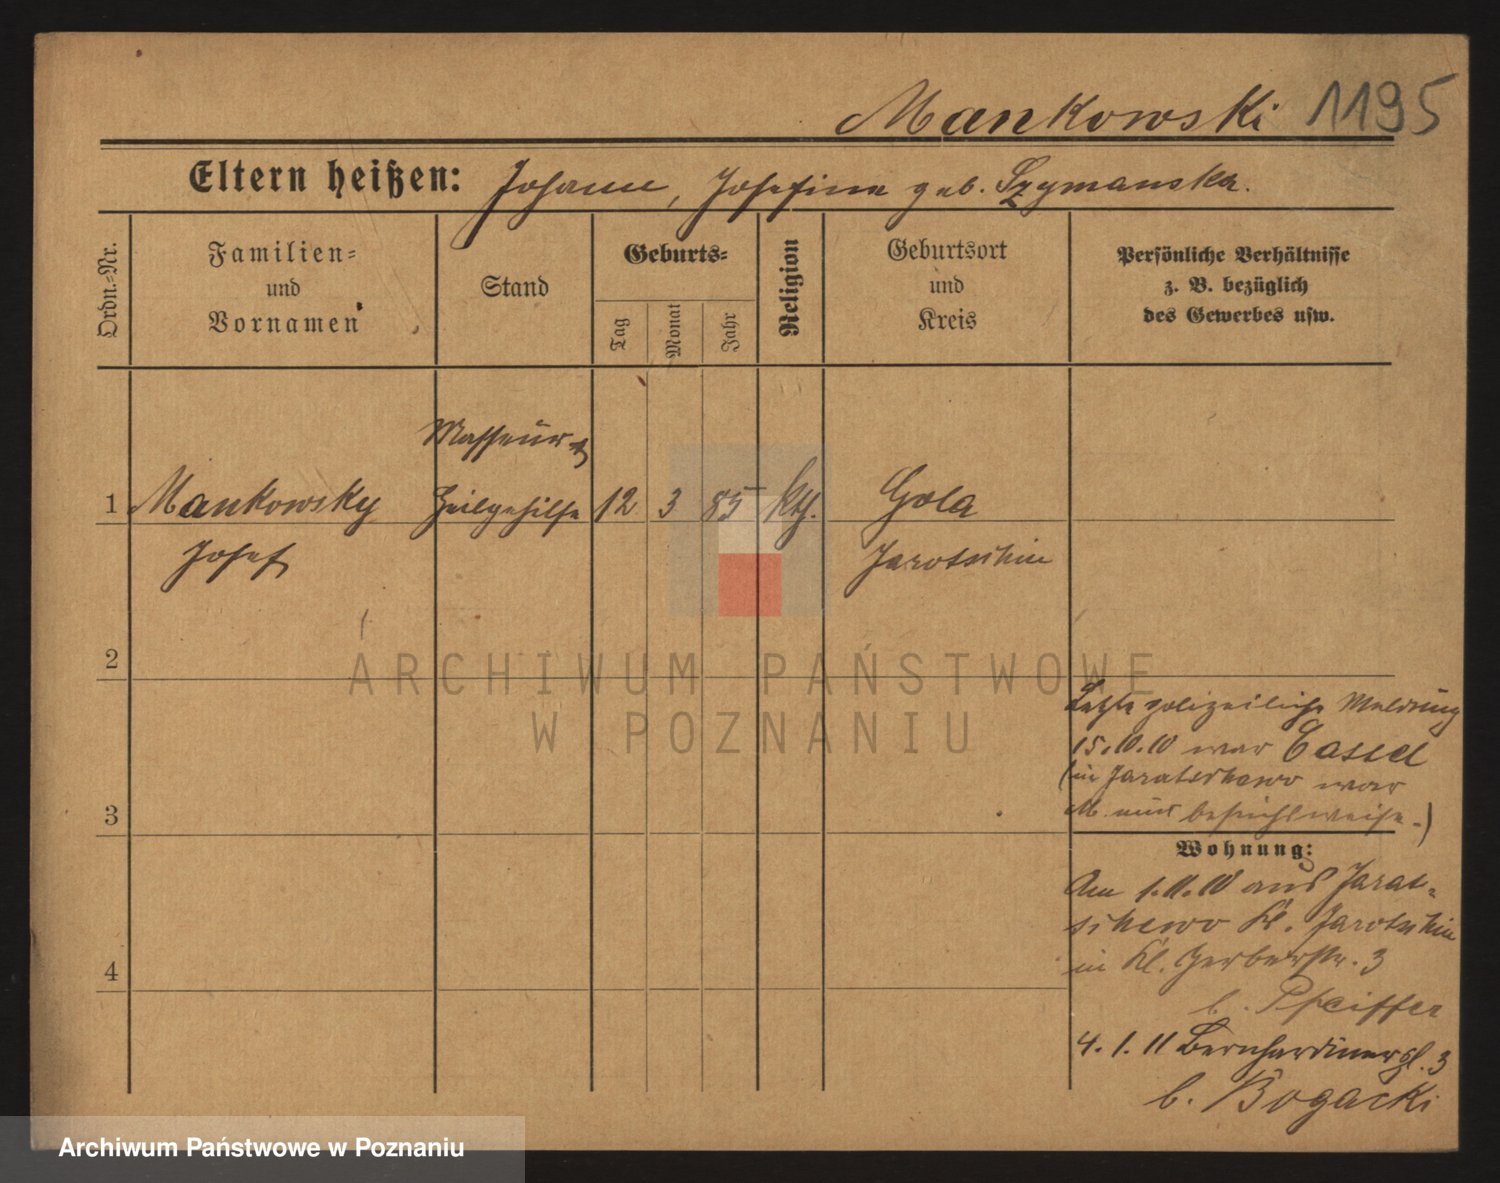 Mankowski 1195
Eltern heißen: Johann, Josefina geb. Szymanska.
Ordn.-Nr.
Familien-
und
Vornamen
Stand
Geburts-
Tag
Monat
Jahr
Religion
Geburtsort
und
Kreis
Persönliche Verhältnisse
z. B. bezüglich
des Gewerbes usw.
Masseur
1 Mankowsky Heilgehilfe 12 3 85 kth. Gola
Josef Jarotschin
2
ARCHIWUM PAŃSTWOWE
W POZNANIU
Letzte polizeiliche Meldung
15.10.10 war Cassel
(in Jaratschewo war
M. nur besuchsweise.)
3
Wohnung:
Am 1.11.10 aus Jarat-
schewo Kr. Jarotschin
in Kl. Gerberstr. 3
4
b. Pfeiffer
4.1.11 Bernhardinerpl. 3
b. Bogacki
Archiwum Państwowe w Poznaniu